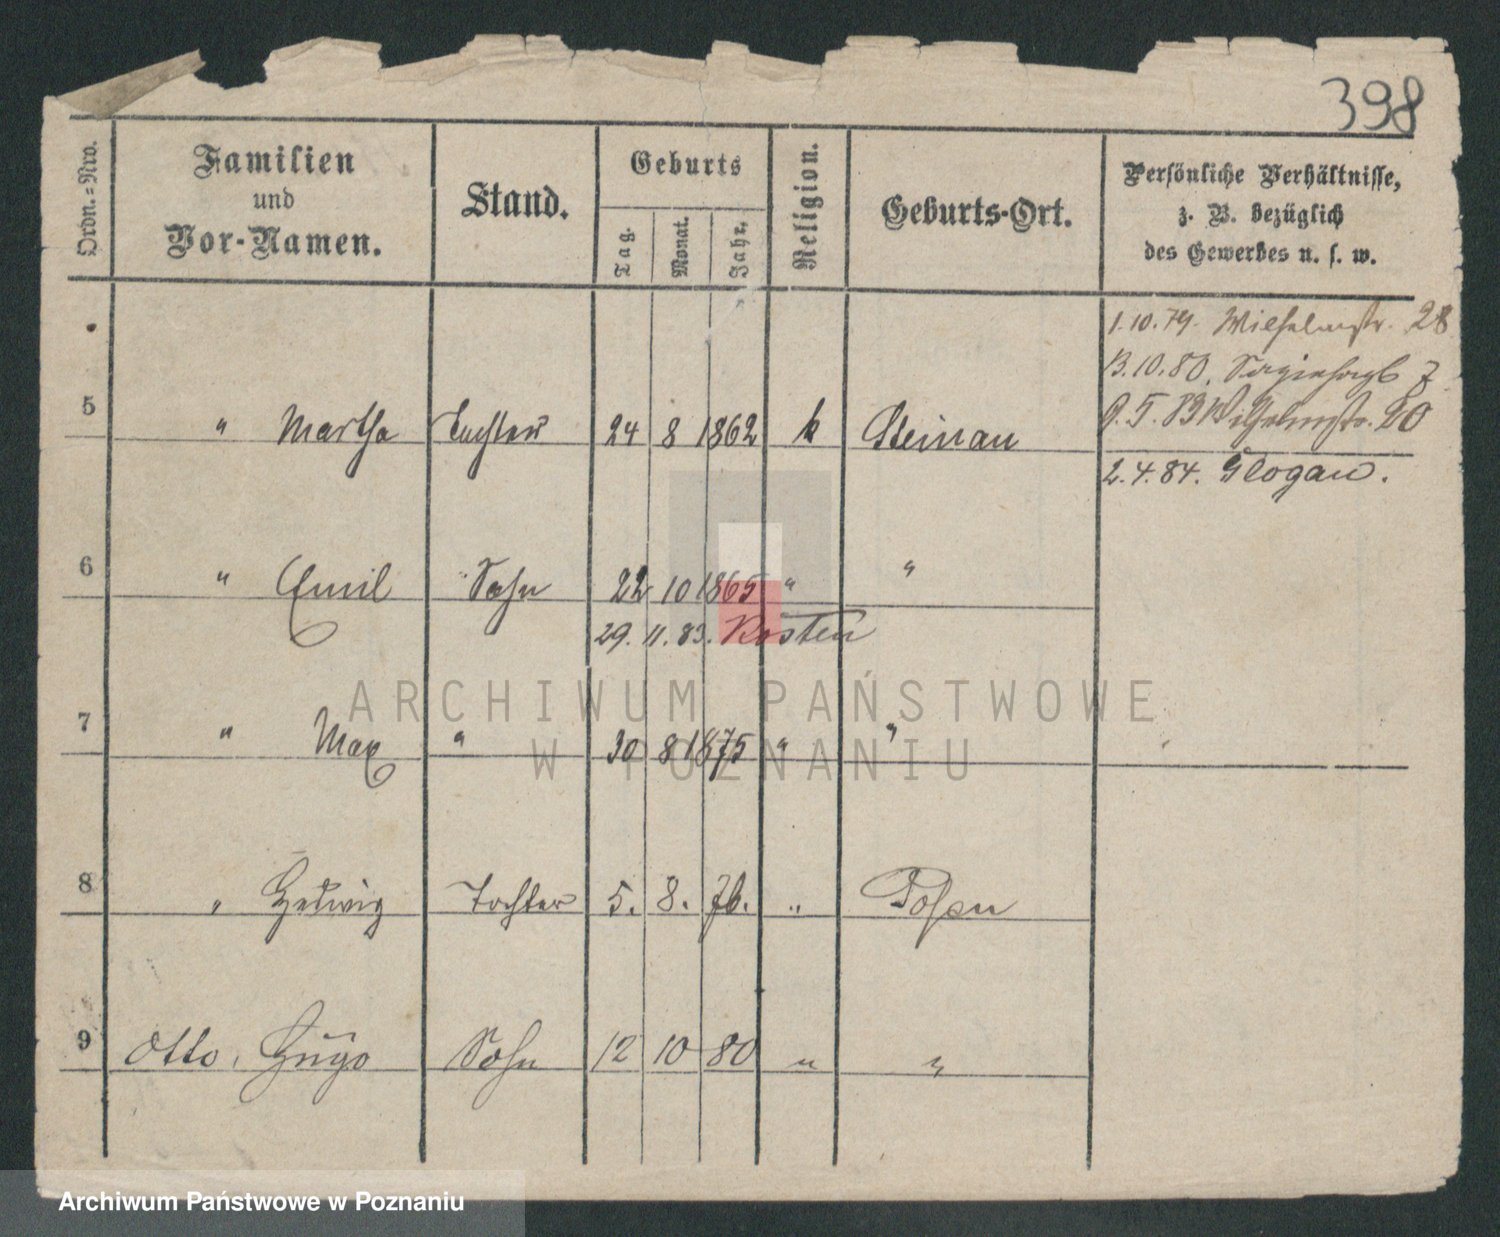 398
Ordn.=Nro.
Familien
und
Vor-Namen.
Stand.
Geburts
Tag.
Monat.
Jahr.
Religion.
Geburts-Ort.
Persönliche Verhältnisse,
z. B. bezüglich
des Gewerbes u. s. w.
1.10.79. Wilhelmstr. 28
13.10.80.
5 " Martha Tochter 24 8 1862 k Steinau
9.5.83 Wilhelmstr. 20
2.4.84. Glogau.
6 " Emil Sohn 22 10 1865 " "
29. 11. 83. Kosten
7 " Max " 30 8 1875 " "
8 " Hedwig Tochter 5. 8. 76. " Posen
9 Otto, Hugo Sohn 12 10 80 " "
ARCHIWUM PAŃSTWOWE
W POZNANIU
Archiwum Państwowe w Poznaniu